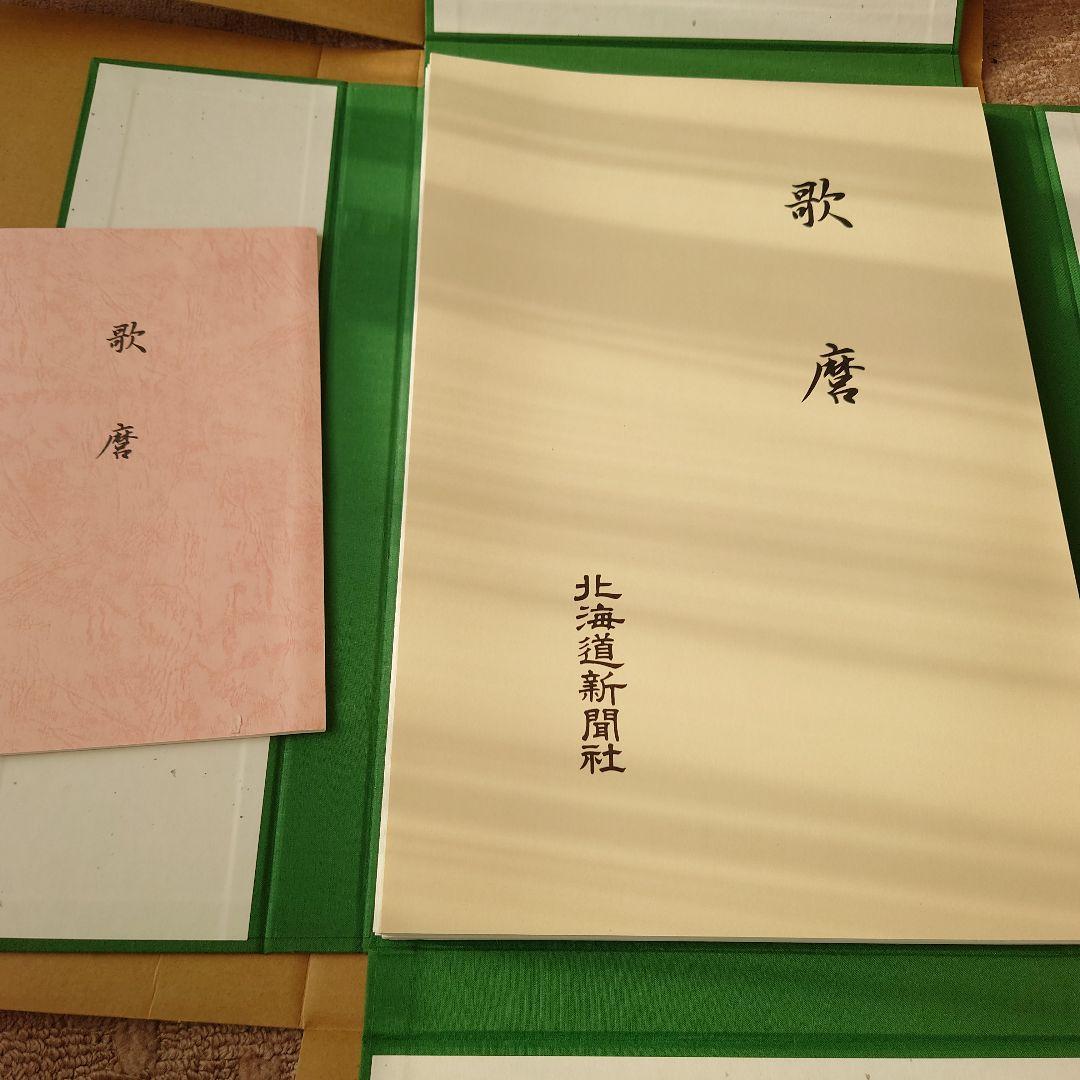 歌麿
北海道新聞社
歌麿